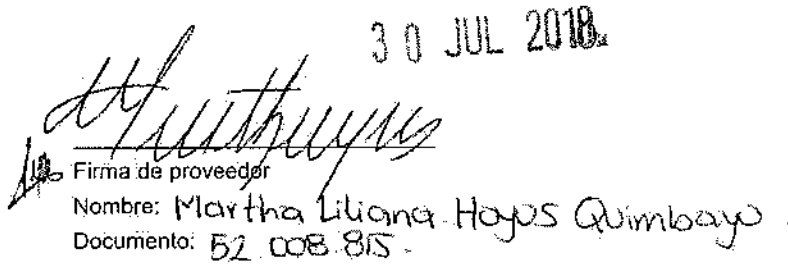 30 JUL 2018
Firma de proveedor
Nombre: Martha Liliana Hoyos Quimbayo
Documento: 52.008.815.